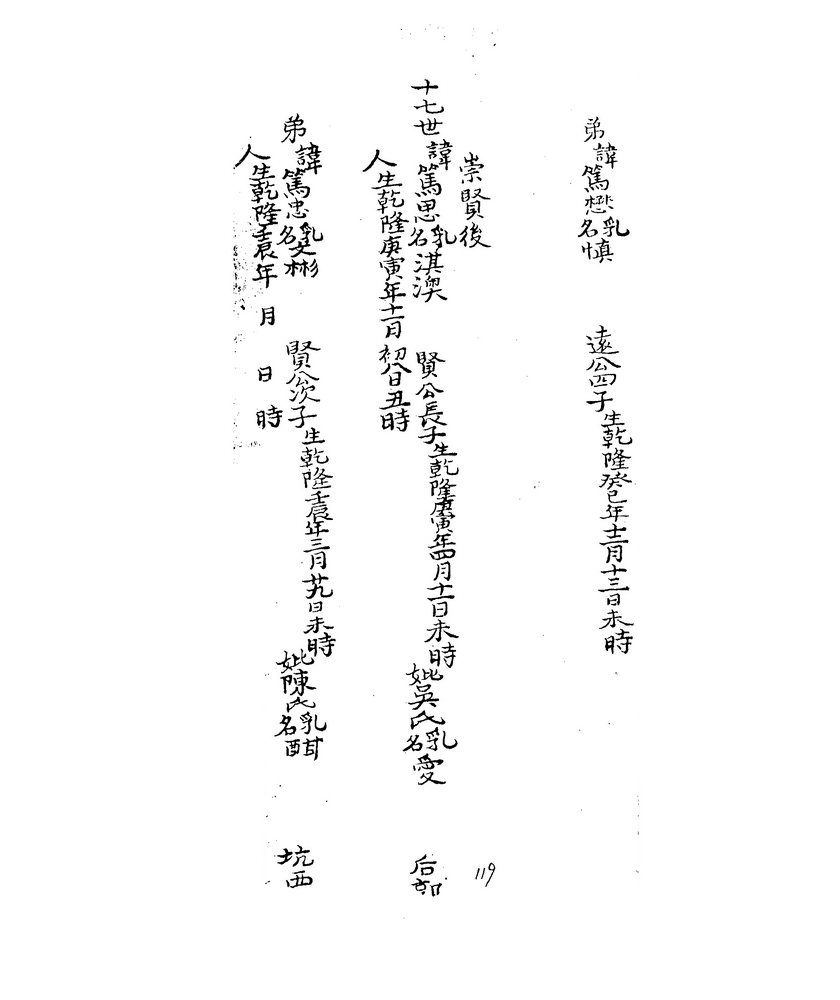 弟諱篤懋乳名慎 遠公四子生乾隆癸巳年十二月十三日未時
崇賢後
十七世諱篤思乳名淇澳 賢公長子生乾隆庚寅年四月十一日未時妣吳氏乳名愛 后郭
人生乾隆庚寅年十一月初八日丑時
弟諱篤忠乳名文彬 賢公次子生乾隆壬辰年三月廿九日未時妣陳氏乳名酣 坑西
人生乾隆壬辰年 月 日 時
119